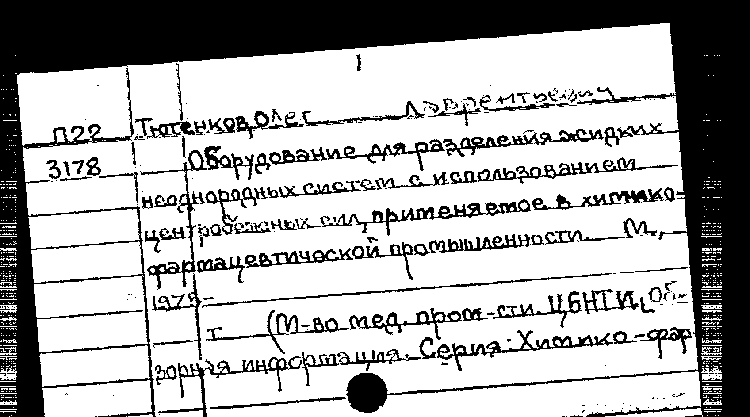 П22 Тютенков, Олег Лаврентьевич
3178 Оборудование для разделения жидких
неоднородных систем с использованием
центробежных сил, применяемое в химико-
фармацевтической промышленности. М.,
1975-
т. (М-во мед. пром-сти. ЦБНТИ. Об-
зорная информация. Серия: Химико-фар